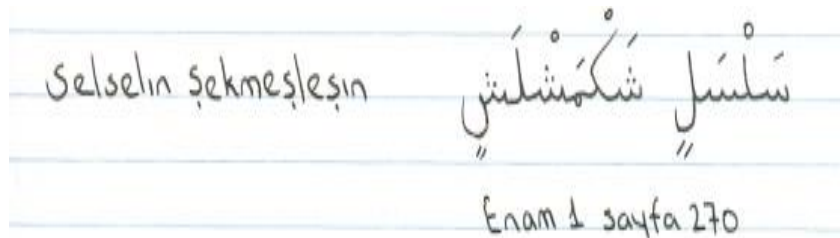 Selselin Şekmeşleşin سَلْسَلٍ شَكْمَشْلَشٍ
Enam 1 sayfa 270